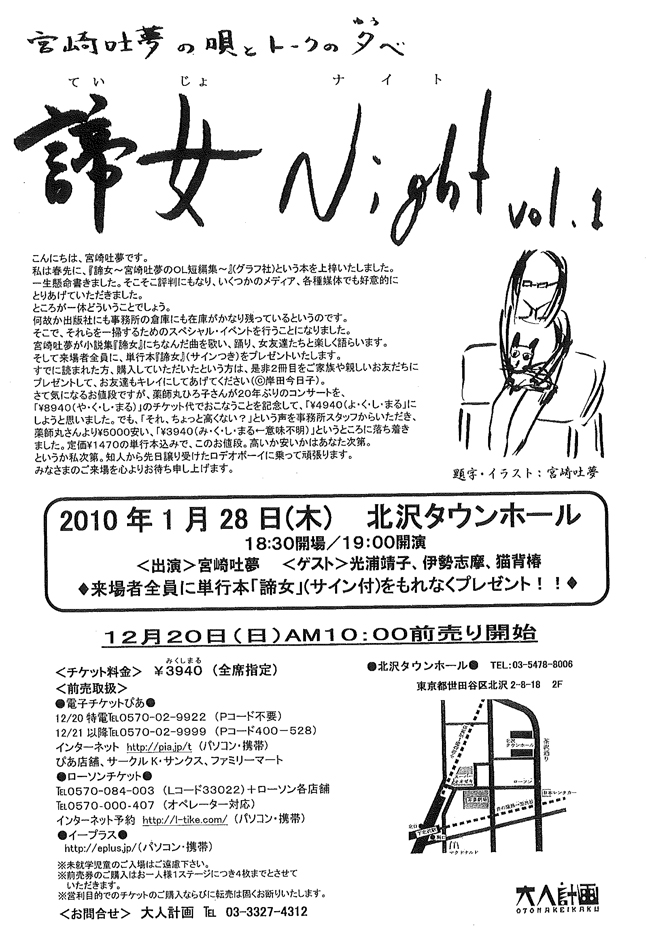 宮崎吐夢の唄とトークの夕べ
ゆう
てい じょ ナイト
諦女 Night vol.1
こんにちは、宮崎吐夢です。
私は春先に、『諦女～宮崎吐夢のOL短編集～』(グラフ社)という本を上梓いたしました。
一生懸命書きました。そこそこ評判にもなり、いくつかのメディア、各種媒体でも好意的に
とりあげていただきました。
ところが一体どういうことでしょう。
何故か出版社にも事務所の倉庫にも在庫がかなり残っているというのです。
そこで、それらを一掃するためのスペシャル・イベントを行うことになりました。
宮崎吐夢が小説集『諦女』にちなんだ曲を歌い、踊り、女友達たちと楽しく語らいます。
そして来場者全員に、単行本『諦女』(サインつき)をプレゼントいたします。
すでに読まれた方、購入していただいたという方は、是非2冊目をご家族や親しいお友だちに
プレゼントして、お友達もキレイにしてあげてください(©岸田今日子)。
さて気になるお値段ですが、薬師丸ひろ子さんが20年ぶりのコンサートを、
「¥8940(や・く・し・まる)」のチケット代でおこなうことを記念して、「¥4940(よ・く・し・まる)に
しようと思いました。でも、「それ、ちょっと高くない?」という声を事務所スタッフからいただき、
薬師丸さんより¥5000安い、「¥3940(み・く・し・まる←意味不明)」というところに落ち着き
ました。定価¥1470の単行本込みで、このお値段。高いか安いかはあなた次第。
というか私次第。知人から先日譲り受けたロデオボーイに乗って頑張ります。
みなさまのご来場を心よりお待ち申し上げます。
題字・イラスト：宮崎吐夢
2010年1月28日(木) 北沢タウンホール
18:30開場／19:00開演
＜出演＞宮崎吐夢 ＜ゲスト＞光浦靖子、伊勢志摩、猫背椿
◆来場者全員に単行本「諦女」(サイン付)をもれなくプレゼント！！◆
12月20日(日)AM10:00前売り開始
みくしまる
＜チケット料金＞ ¥3940 (全席指定)
＜前売取扱＞
●電子チケットぴあ●
12/20 特電℡0570-02-9922 (Pコード不要)
12/21 以降℡0570-02-9999 (Pコード400-528)
インターネット http://pia.jp/t (パソコン・携帯)
ぴあ店舗、サークルK・サンクス、ファミリーマート
●ローソンチケット●
℡0570-084-003 (Lコード33022)＋ローソン各店舗
℡0570-000-407 (オペレーター対応)
インターネット予約 http://l-tike.com/ (パソコン・携帯)
●イープラス●
http://eplus.jp/(パソコン・携帯)
※未就学児童のご入場はご遠慮下さい。
※前売券のご購入はお一人様1ステージにつき4枚までとさせて
いただきます。
※営利目的でのチケットのご購入ならびに転売は固くお断りいたします。
＜お問合せ＞ 大人計画 ℡ 03-3327-4312
●北沢タウンホール● TEL:03-5478-8006
東京都世田谷区北沢2-8-18 2F
北沢
タウンホール
茶沢通り
ローソン
本多劇場
下北沢駅
北口
南口
マクドナルド
大人計画
OTONAKEIKAKU